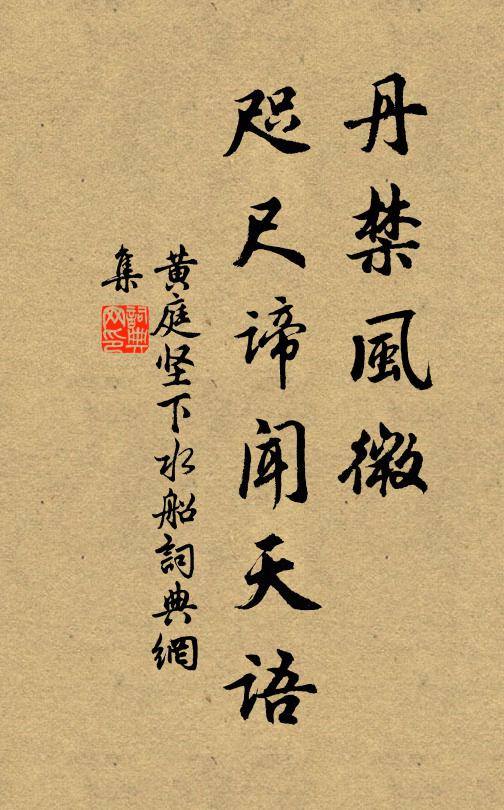 丹禁風微
咫尺諦闻天语
黄庭坚下水船詞典網
集
詞典
网印